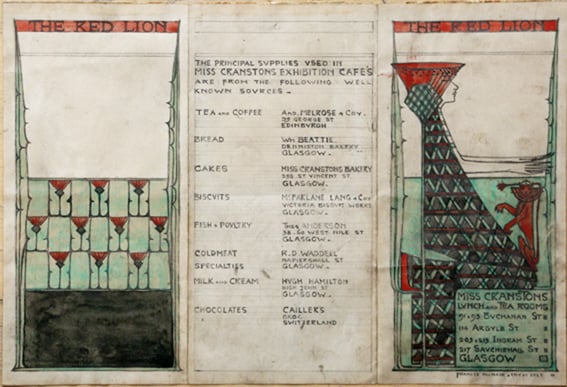 THE RED LION
THE PRINCIPAL SUPPLIES VSED IN
MISS CRANSTONS EXHIBITION CAFÉS
ARE FROM THE FOLLOWING WELL
KNOWN SOURCES -
TEA AND COFFEE
AND. MELROSE & COY.
GEORGE ST
EDINBVRGH
BREAD
WM BEATTIE
BAKERY
GLASGOW.
CAKES
MISS CRANSTONS BAKERY
ST VINCENT ST
GLASGOW.
BISCVITS
MCFARLANE LANG & COY
VICTORIA BISCVIT WORKS
GLASGOW.
FISH & POVLTRY
THOS ANDERSON
WEST NILE ST
GLASGOW.
COLDMEAT
SPECIALTIES
R.D. WADDELL
NAPIERSHALL ST
GLASGOW.
MILK AND CREAM
HVGH HAMILTON
HIGH JOHN ST
GLASGOW.
CHOCOLATES
CAILLERS
BROC
SWITZERLAND
THE RED LION
MISS CRANSTONS
LVNCH AND TEA ROOMS
91-93 BVCHANAN ST
114 ARGYLE ST
205 & 215 INGRAM ST
217 SAVCHIEHALL ST
GLASGOW